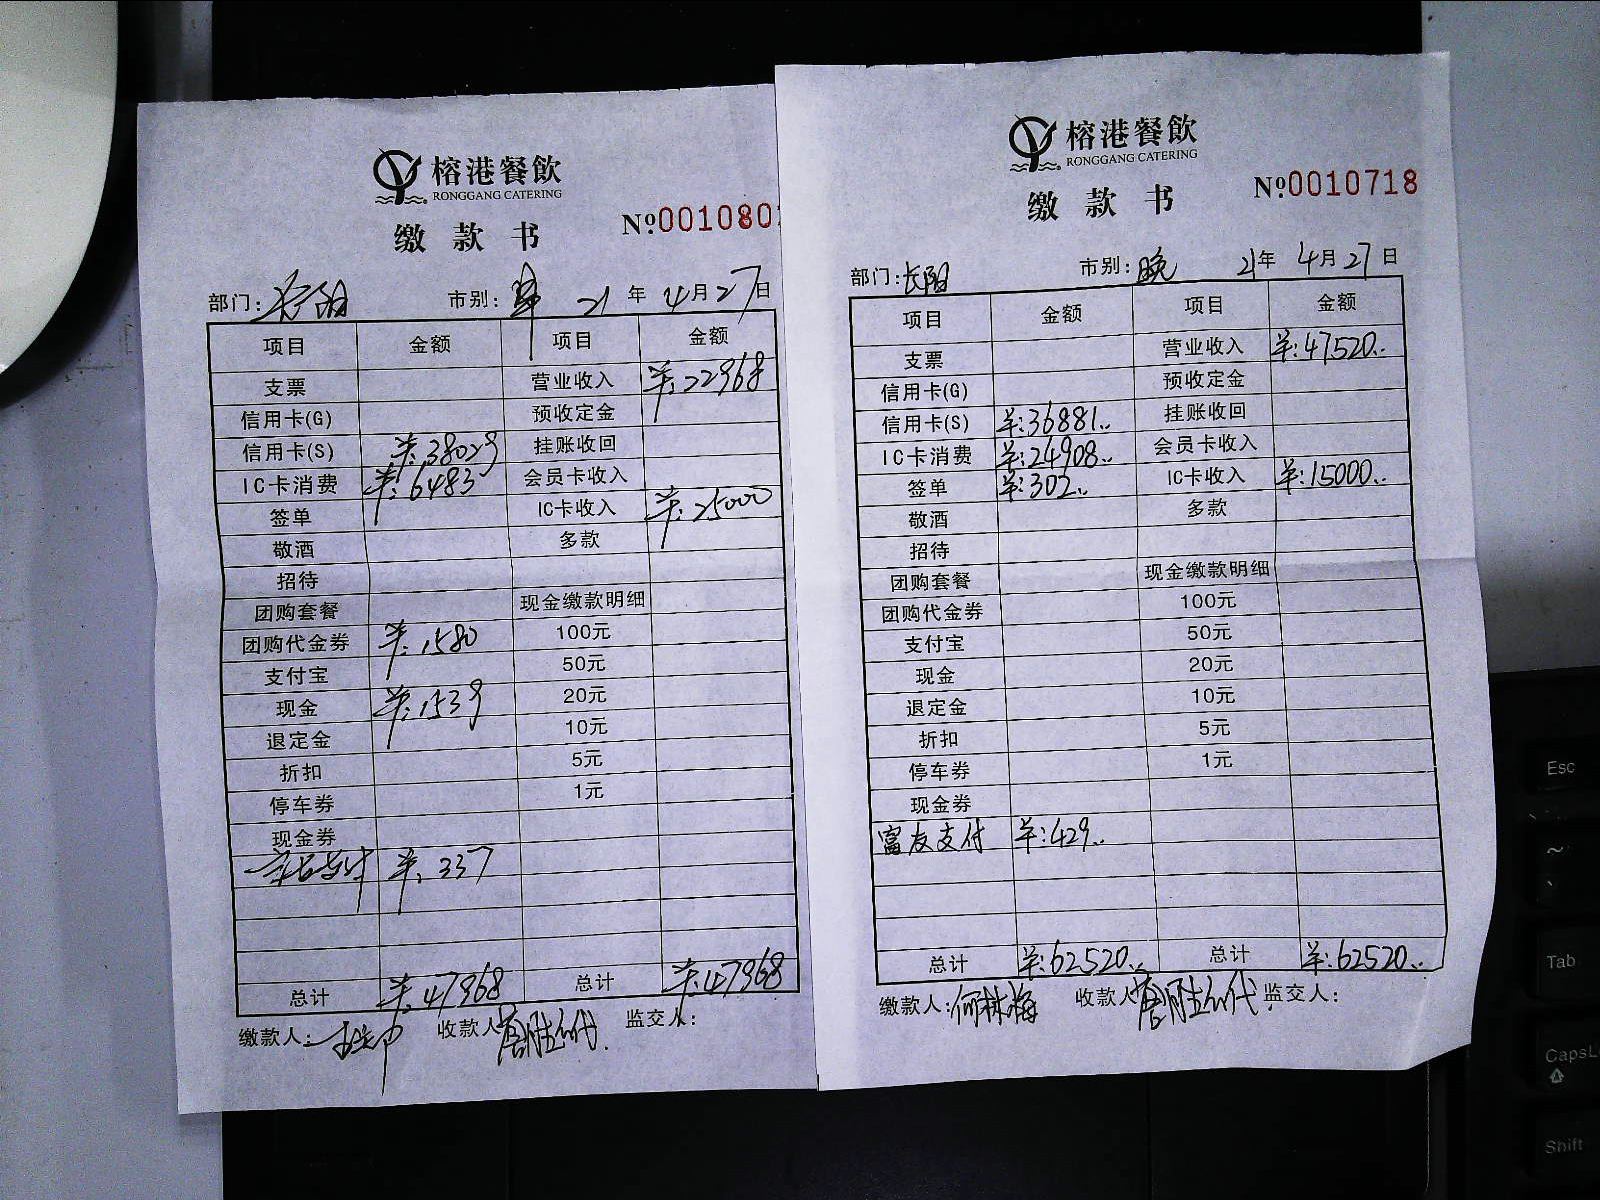 榕港餐飲
RONGGANG CATERING
缴款书
№001080
部门: 市别: 21年4月27日
项目 金额 项目 金额
支票 营业收入 ¥:22968
信用卡(G) 预收定金
信用卡(S) ¥:38029 挂账收回
IC卡消费 ¥:6483 会员卡收入
签单 IC卡收入 ¥:25000
敬酒 多款
招待
团购套餐 现金缴款明细
团购代金券 ¥:1580 100元
支付宝 50元
现金 ¥:1539 20元
退定金 10元
折扣 5元
停车券 1元
现金券
¥:337
总计 ¥:47968 总计 ¥:47968
缴款人: 收款人 监交人:
榕港餐飲
RONGGANG CATERING
缴款书
№0010718
部门:长阳 市别:晚 21年4月27日
项目 金额 项目 金额
支票 营业收入 ¥:47520..
信用卡(G) 预收定金
信用卡(S) ¥:36881.. 挂账收回
IC卡消费 ¥:24908.. 会员卡收入
签单 ¥:302.. IC卡收入 ¥:15000..
敬酒 多款
招待
团购套餐 现金缴款明细
团购代金券 100元
支付宝 50元
现金 20元
退定金 10元
折扣 5元
停车券 1元
现金券
富友支付 ¥:429..
总计 ¥:62520.. 总计 ¥:62520..
缴款人:何林梅 收款人 监交人:
Esc
Tab
CapsL
Shift